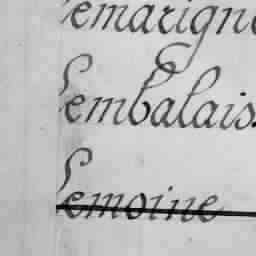 Lemarign
Lembalais.
Lemoine